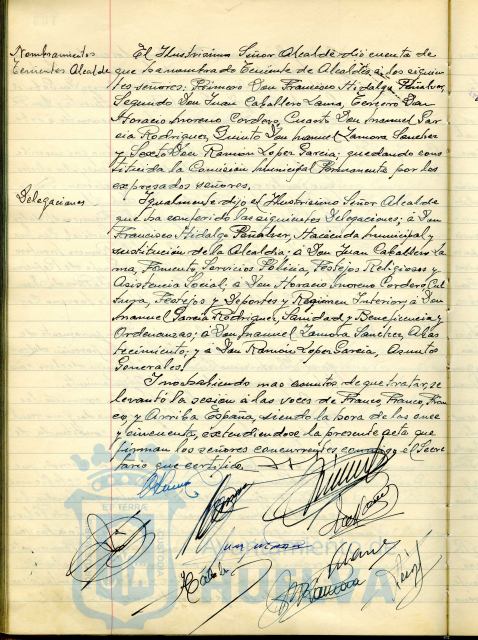 Nombramientos
Tenientes Alcalde
El Ilustrisimo Señor Alcalde dió cuenta de
que ha nombrado Teniente de Alcaldes a los siguien
tes señores: Primero Don Francisco Hidalgo Peñalver,
Segundo Don Juan Caballero Lama, Tercero Don
Horacio Moreno Cordero, Cuarto Don Manuel Gar
cia Rodriguez, Quinto Don Manuel Zamora Sanchez
y Sexto Don Ramon Lopez Garcia; quedando cons
tituida la Comisión Municipal Permanente por los
expresados señores.
Delegaciones
Igualmente dijo el Ilustrisimo Señor Alcalde
que ha conferido las siguientes Delegaciones; á Don
Francisco Hidalgo Peñalver, Hacienda Municipal y
sustitución de la Alcaldia; á Don Juan Caballero La
ma, Fomento, Servicios Policia, Festejos Religiosos y
Asistencia Social; á Don Horacio Moreno Cordero, Cul
tura, Festejos y Deportes y Régimen Interior; á Don
Manuel Garcia Rodriguez, Sanidad y Beneficencia y
Ordenanzas; á Don Manuel Zamora Sanchez, Abas
tecimiento; y á Don Ramón Lopez Garcia, Asuntos
Generales.
I no habiendo mas asuntos de que tratar, se
levantó la sesion á las voces de Franco, Franco, Fran
co, y Arriba España, siendo la hora de las once
y cincuenta, extendiendose la presente acta que
firman los señores concurrentes conmigo el Secre
tario que certifico.
Ayuntamiento de
HUELVA